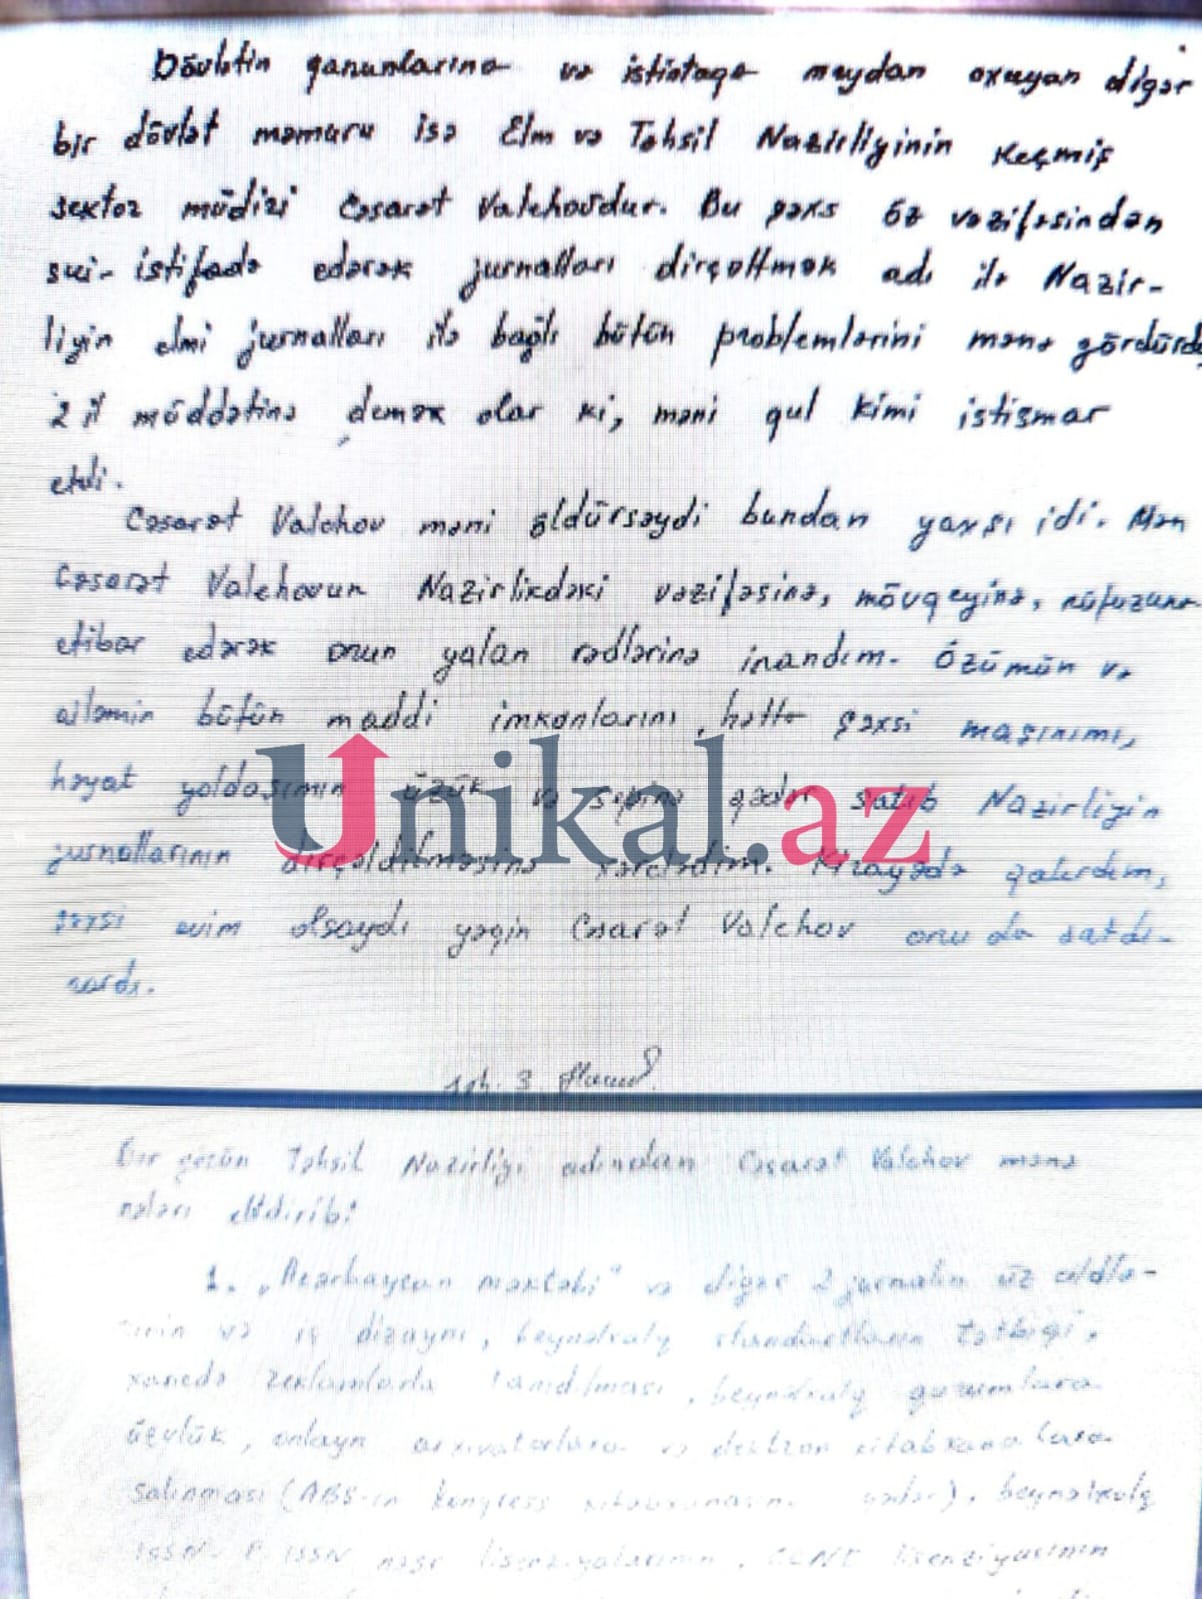 Dövlətin qanunlarına və istintaqa meydan oxuyan digər
bir dövlət məmuru isə Elm və Təhsil Nazirliyinin keçmiş
sektor müdiri Cəsarət Valehovdur. Bu şəxs öz vəzifəsindən
sui-istifadə edərək jurnalları dirçəltmək adı ilə Nazir-
liyin elmi jurnalları ilə bağlı bütün problemlərini mənə gördürdü,
2 il müddətinə demək olar ki, məni qul kimi istismar
etdi.
Cəsarət Valehov məni öldürsəydi bundan yaxşı idi. Mən
Cəsarət Valehovun Nazirlikdəki vəzifəsinə, mövqeyinə, nüfuzuna
etibar edərək onun yalan vədlərinə inandım. Özümün və
ailəmin bütün maddi imkanlarını, hətta şəxsi maşınımı,
həyat yoldaşımın üzük və sepinə qədər satıb Nazirliyin
Unikal.az
jurnallarının dirçəldilməsinə xərclədim. Kirayədə qalırdım,
şəxsi evim olsaydı yəqin Cəsarət Valehov onu da satdı-
rardı.
səh. 3
Təhsil Nazirliyi adından Cəsarət Valehov mənə
nələri etdirib:
1. „Azərbaycan məktəbi" və digər 2 jurnalın üz cildlə-
rinin və iç dizaynı, beynəlxalq standartların tətbiqi,
reklamlarla tanıdılması, beynəlxalq qurumlara
üzvlük, onlayn arxivatorlara və elektron kitabxanalara
salınması (ABŞ-ın kongress kitabxanasına qədər), beynəlxalq
ISSN P ISSN nəşr lisenziyalarının, lisenziyasının